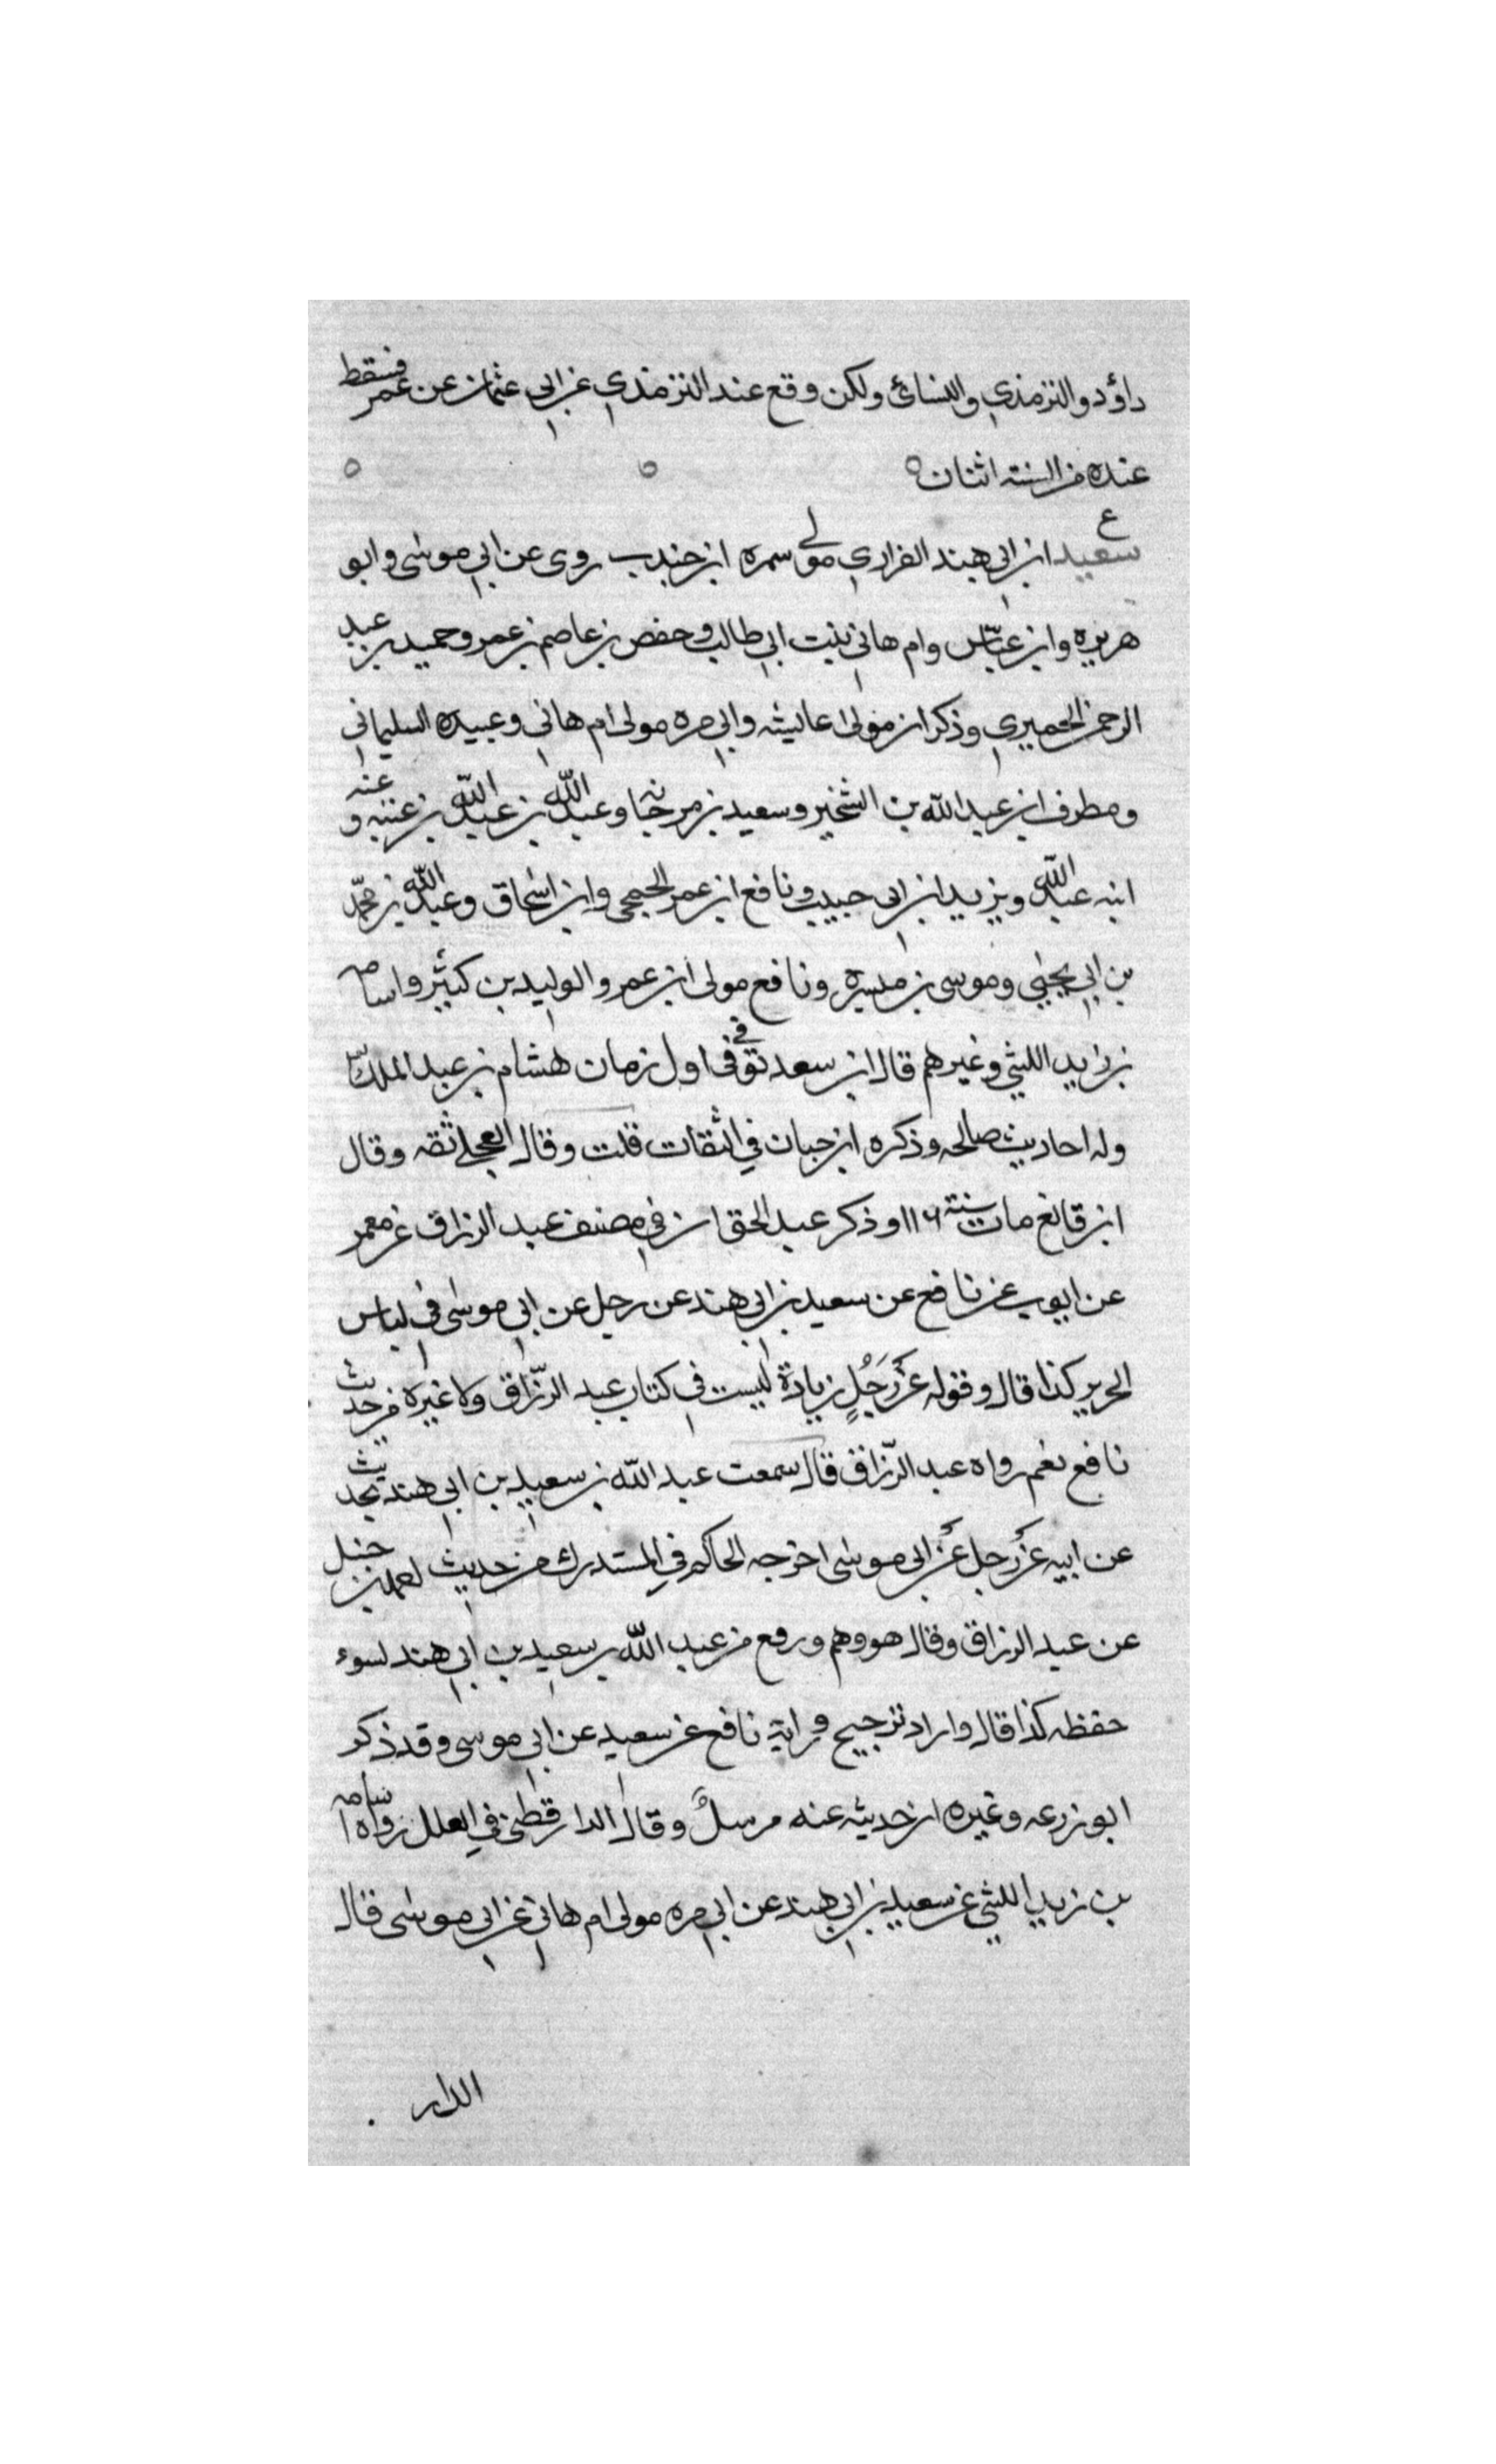 داؤد والترمذي والنسائ ولكن وقع عند الترمذي عن ابي عثمان عن عمر فسقط
عنده من السنة اثنان
ع
سعيد ابن ابي هند الفزاري مولى سمره ابن جندب روى عن ابي موسى وابو
هريره وابن عباس وام هاني بنت ابي طالب وحفص بن عاصم بن عمر وحميد بن عبد
الرحمن الحميري وذكوان مولى عايشه وابي مره مولى ام هاني وعبيده السليماني
ومطرف ابن عبد الله بن الشخير وسعيد بن مرجانه وعبد الله بن عبد الله بن عتبه وعنه
ابنه عبد الله ويزيد ابن ابي حبيب ونافع ابن عمر الجمحي وابن اسحاق وعبد الله بن محمد
بن ابي يحيى وموسى بن ميسره ونافع مولى ابن عمر والوليد بن كثير واسامه
بن زيد الليثي وغيرهم قال ابن سعد توفي في اول زمان هشام بن عبد الملك
وله احاديث صالحه وذكره ابن حبان في الثقات قلت وقال العجلي ثقه وقال
ابن قانع مات سنة ١١٦ وذكر عبد الحق ان في مصنف عبد الرزاق عن معمر
عن ايوب عن نافع عن سعيد بن ابي هند عن رجل عن ابي موسى في لباس
الحرير كذا قال وقوله عن رَجُلٍ زيادة ليست في كتاب عبد الرزّاق ولا غيره من حديث
نافع نعم رواه عبد الرّزاق قال سمعت عبد الله بن سعيد بن ابي هند يحدث
عن ابيه عن رجل عن ابي موسى اخرجه الحاكم في المستدرك من حديث حنبل
عن عبد الرزاق وقال هو وهم ورفع من عبد الله بن سعيد بن ابي هند لسوء
حفظه كذا قال واراد ترجيح رواية نافع عن سعيد عن ابي موسى وقد ذكر
ابو زرعه وغيره ان حديثه عنه مرسلٌ وقال الدارقطني في العلل رواه اسامه
بن زيد الليثي عن سعيد بن ابي هند عن ابي مره مولى ام هاني عن ابي موسى قال
الدار